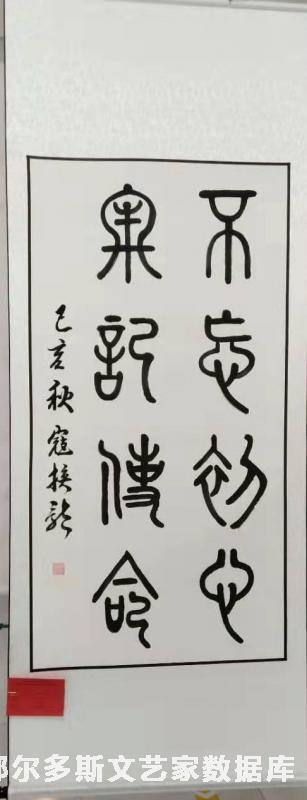 不忘初心
牢記使命
己亥秋寇挨龍
鄂尔多斯文艺家数据库